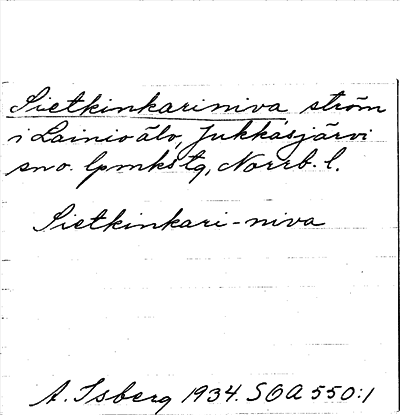 Sietkinkariniva ström
i Lainioälv, Jukkasjärvi
sn o. lpmkstg, Norrb. l.
Sietkinkari-niva
A. Isberg 1934. SOA 550:1